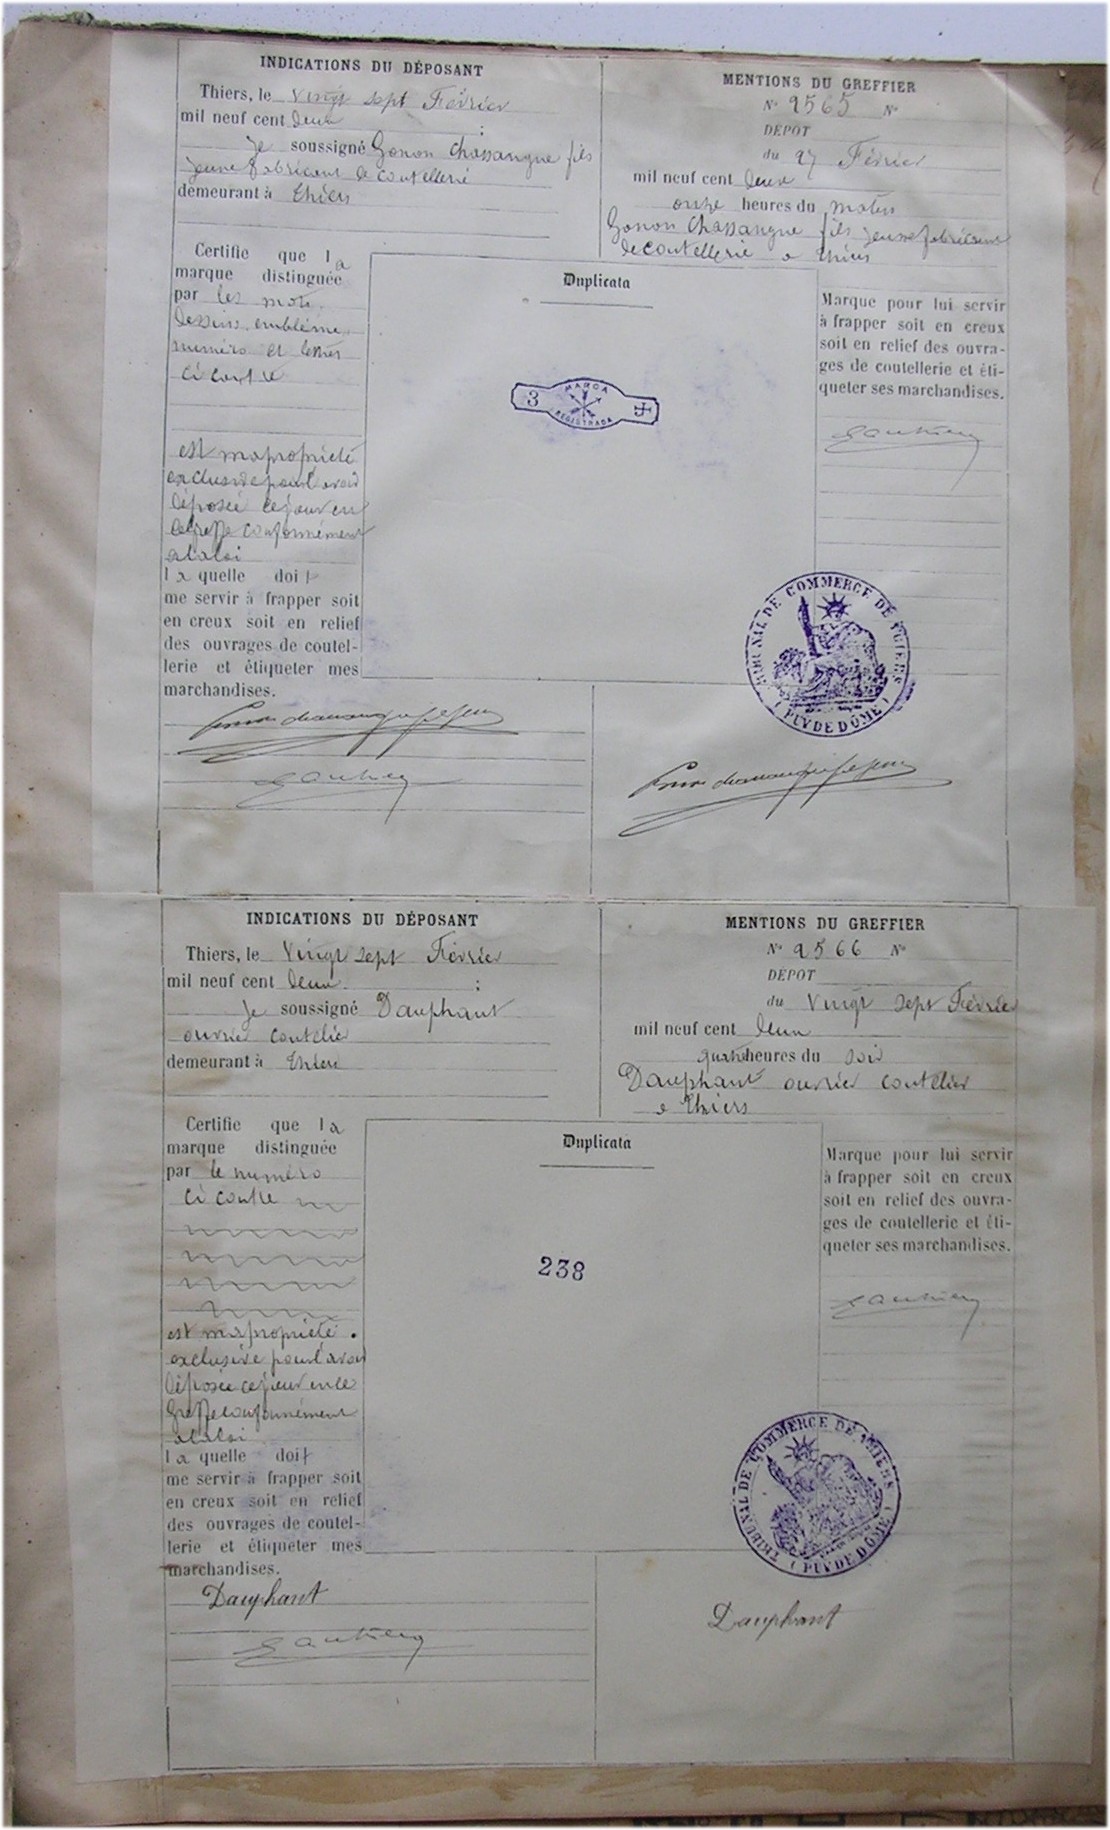 INDICATIONS DU DÉPOSANT
Thiers, le vingt sept Février
mil neuf cent deux ;
Je soussigné Gonon Chassangne fils
jeune fabricant de coutellerie
demeurant à Thiers
MENTIONS DU GREFFIER
N° 2565 N°
DÉPOT
du 27 Février
mil neuf cent deux
onze heures du matin
Gonon Chassangne fils jeune fabricant
de coutellerie a Thiers
Certifie que la
marque distinguée
par les mots,
dessins, emblème,
numéro et lettres
ci contre
est ma propriété
exclusive pour l'avoir
déposée ce jour en
le greffe conformément
a la loi
la quelle doit
me servir à frapper soit
en creux soit en relief
des ouvrages de coutel-
lerie et étiqueter mes
marchandises.
Duplicata
3 MARCA REGISTRADA
Marque pour lui servir
à frapper soit en creux
soit en relief des ouvra-
ges de coutellerie et éti-
queter ses marchandises.
TRIBUNAL DE COMMERCE DE THIERS
(PUY DE DÔME)
INDICATIONS DU DÉPOSANT
Thiers, le Vingt sept Février
mil neuf cent deux ;
Je soussigné Dauphant
ouvrier coutelier
demeurant à Thiers
MENTIONS DU GREFFIER
N° 2566 N°
DÉPOT
du Vingt sept Février
mil neuf cent deux
quatre heures du soir
Dauphant ouvrier coutelier
a Thiers
Certifie que la
marque distinguée
par le numéro
ci contre
est ma propriété
exclusive pour l'avoir
déposée ce jour en le
Greffe conformément
a la loi
la quelle doit
me servir à frapper soit
en creux soit en relief
des ouvrages de coutel-
lerie et étiqueter mes
marchandises.
Dauphant
Duplicata
238
Marque pour lui servir
à frapper soit en creux
soit en relief des ouvra-
ges de coutellerie et éti-
queter ses marchandises.
TRIBUNAL DE COMMERCE DE THIERS
(PUY DE DÔME)
Dauphant